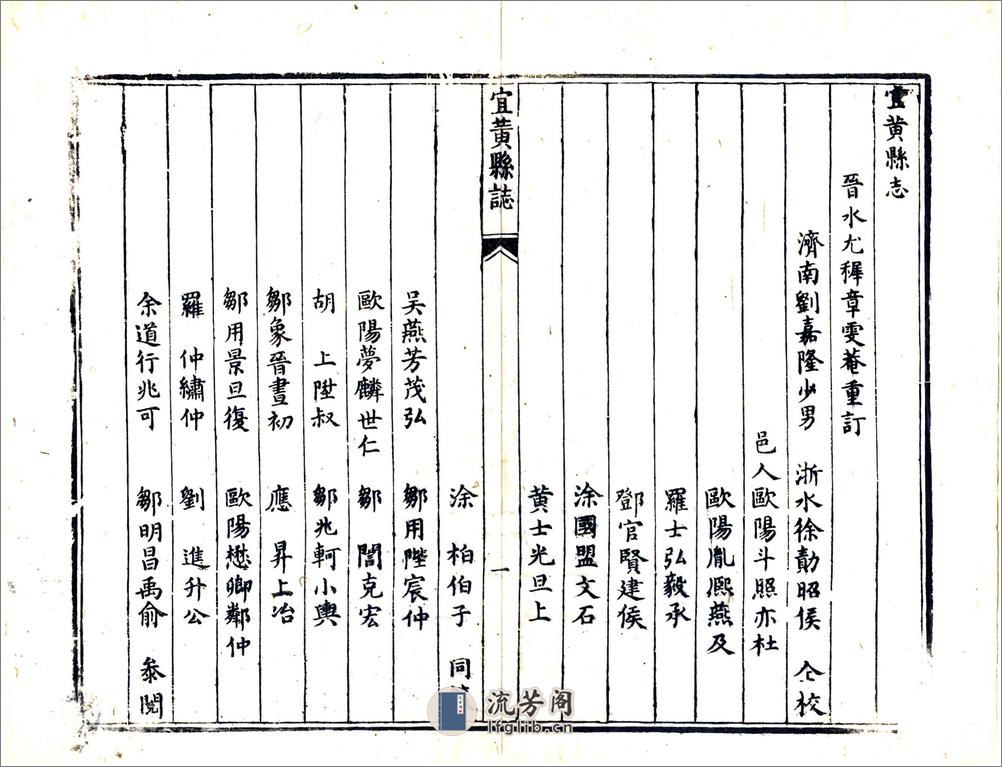 宜黄縣志
晉水尤穉章雯菴重訂
濟南劉嘉隆少男 浙水徐勷昭侯 仝校
邑人歐陽斗照亦杜
歐陽胤熈燕及
羅士弘毅承
鄧官賢建侯
涂國盟文石
黄士光旦上
宜黄縣誌
一
涂 柏伯子 同
吴燕芳茂弘 鄒用陛宸仲
歐陽夢麟世仁 鄒 誾克宏
胡 上陞叔 鄒兆軻小輿
鄒象晉晝初 應 昇上冶
鄒用景旦復 歐陽懋卿鄰仲
羅 仲繡仲 劉 進升公
余道行兆可 鄒明昌禹俞 叅閲
流芳阁
lfglib.cn